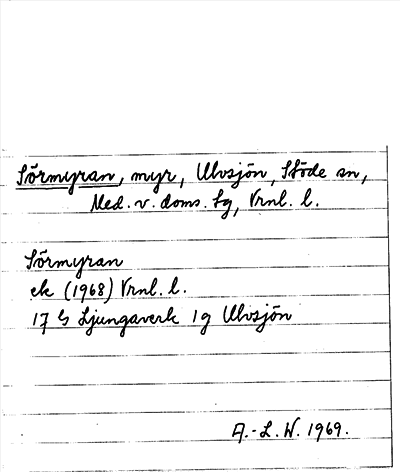 Sörmyran, myr, Ulvsjön, Stöde sn,
Med. v. doms. lg, Vrnl. l.
Sörmyran
ek (1968) Vrnl. l.
17 G Ljungaverk 1g Ulvsjön
A.-L. W. 1969.